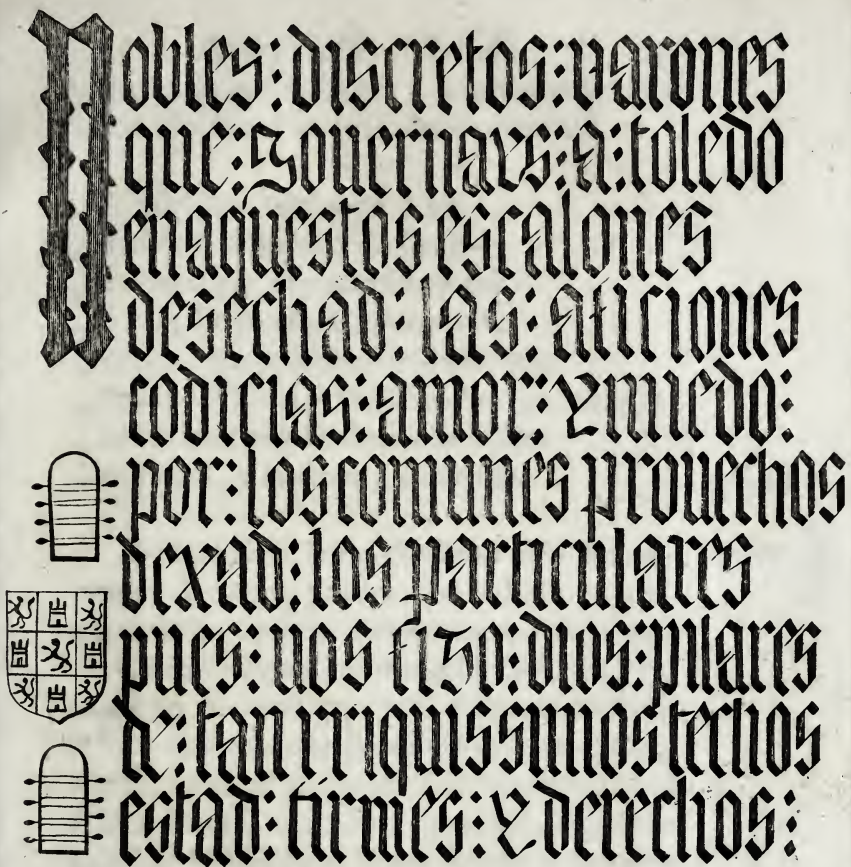 Nobles: discretos: varones
que: gouernays: a: toledo
en aquestos escalones
desechad: las: aficiones
codicias: amor: y miedo:
por: los comunes prouechos
dexad: los particulares
pues: uos fizo: dios: pilares
de: tan rriquissimos techos
estad: firmes: y derechos: